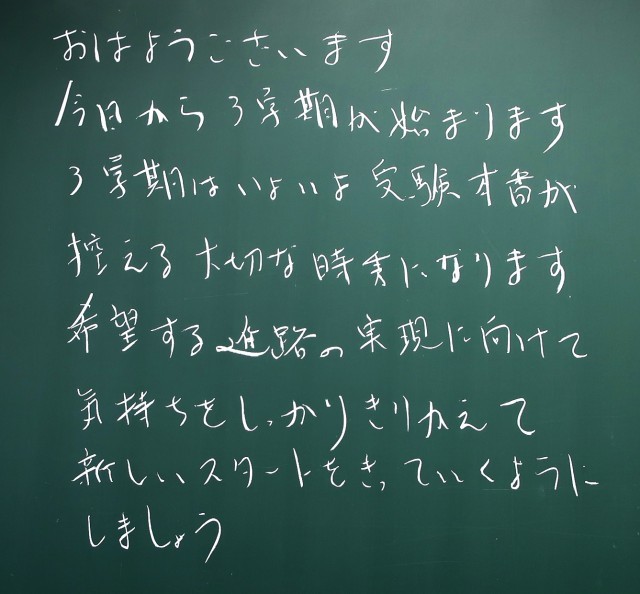 おはようございます
今日から3学期が始まります
3学期はいよいよ受験本番が
控える大切な時期になります
希望する進路の実現に向けて
気持ちをしっかりきりかえて
新しいスタートをきっていくように
しましょう